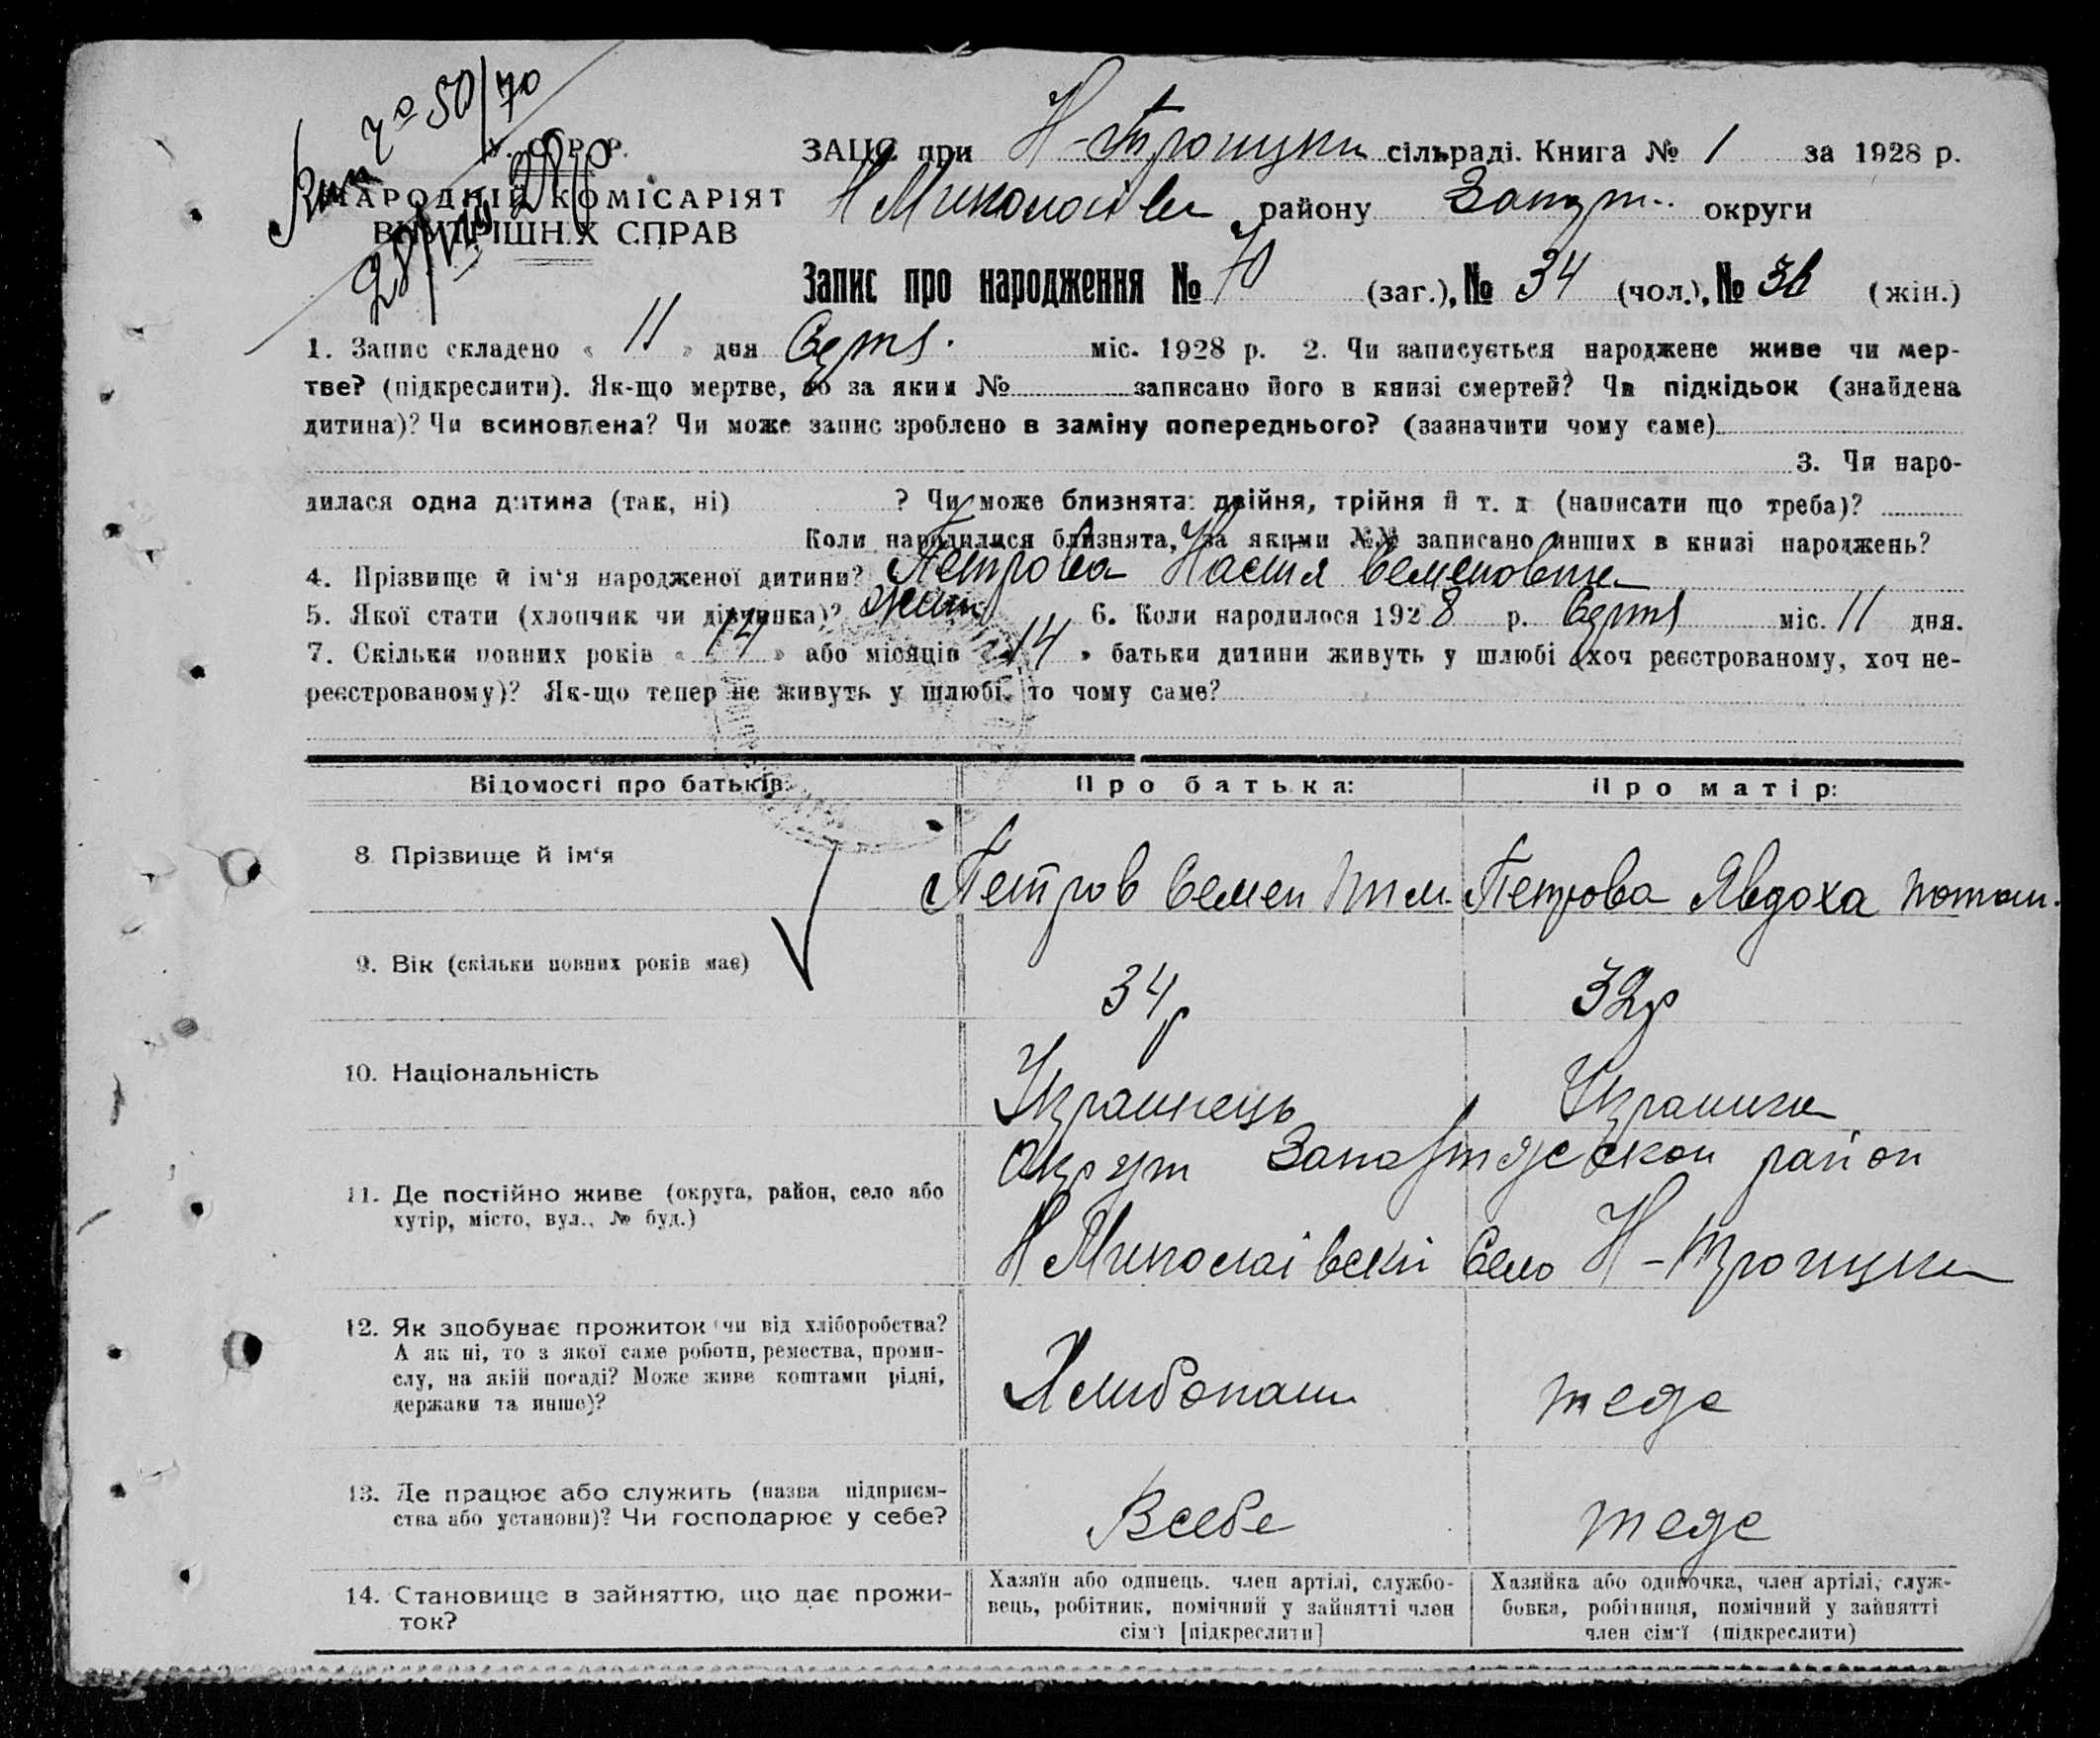 У. С. Р. Р.
НАРОДНІЙ КОМІСАРІЯТ
ВНУТРІШНІХ СПРАВ
ЗАЦС при Н-Троицки сільраді. Книга № 1 за 1928 р.
Н Миколаївс району Запут.. округи
Запис про народження № 70 (заг.), № 34 (чол.), № 36 (жін.)
1. Запис складено « 11 » дня міс. 1928 р. 2. Чи записується народжене живе чи мер-
тве? (підкреслити). Як-що мертве, то за яким № записано його в книзі смертей? Чи підкідьок (знайдена
дитина)? Чи всиновлена? Чи може запис зроблено в заміну попереднього? (зазначити чому саме)
3. Чи наро-
дилася одна дитина (так, ні) ? Чи може близнята: двійня, трійня й т. д. (написати що треба)?
Коли народилися близнята, за якими №№ записано инших в книзі народжень?
4. Прізвище й ім‘я народженої дитини? Петрова Настя Семеновна
5. Якої стати (хлопчик чи дівчинка)? жин 6. Коли народилося 1928 р. міс. 11 дня.
7. Скільки повних років « 14 » або місяців « 14 » батьки дитини живуть у шлюбі (хоч реєстрованому, хоч не-
реєстрованому)? Як-що тепер не живуть у шлюбі, то чому саме?
Відомості про батьків: Про батька: Про матір:
8 Прізвище й ім‘я Петров Семен Тим. Петрова Явдоха Потап.
9. Вік (скільки повних років має) 34р 32р
10. Національність Украинець Украинка
11. Де постійно живе (округа, район, село або
хутір, місто, вул., № буд.)
район
Н Миколаівскі Село Н-Троицки
12. Як здобуває прожиток (чи від хліборобства?
А як ні, то з якої саме роботи, ремества, проми-
слу, на якій посаді? Може живе коштами рідні,
держави та инше)?
Хлибопаш теде
13. Де працює або служить (назва підприєм-
ства або установи)? Чи господарює у себе?
Всебе теде
14. Становище в зайняттю, що дає прожи-
ток?
Хазяїн або одинець. член артілі, службо-
вець, робітник, помічний у зайнятті член
сім‘ї [підкреслити]
Хазяйка або одиночка, член артілі, служ-
бовка, робітниця, помічний у зайнятті
член сім‘ї (підкреслити)